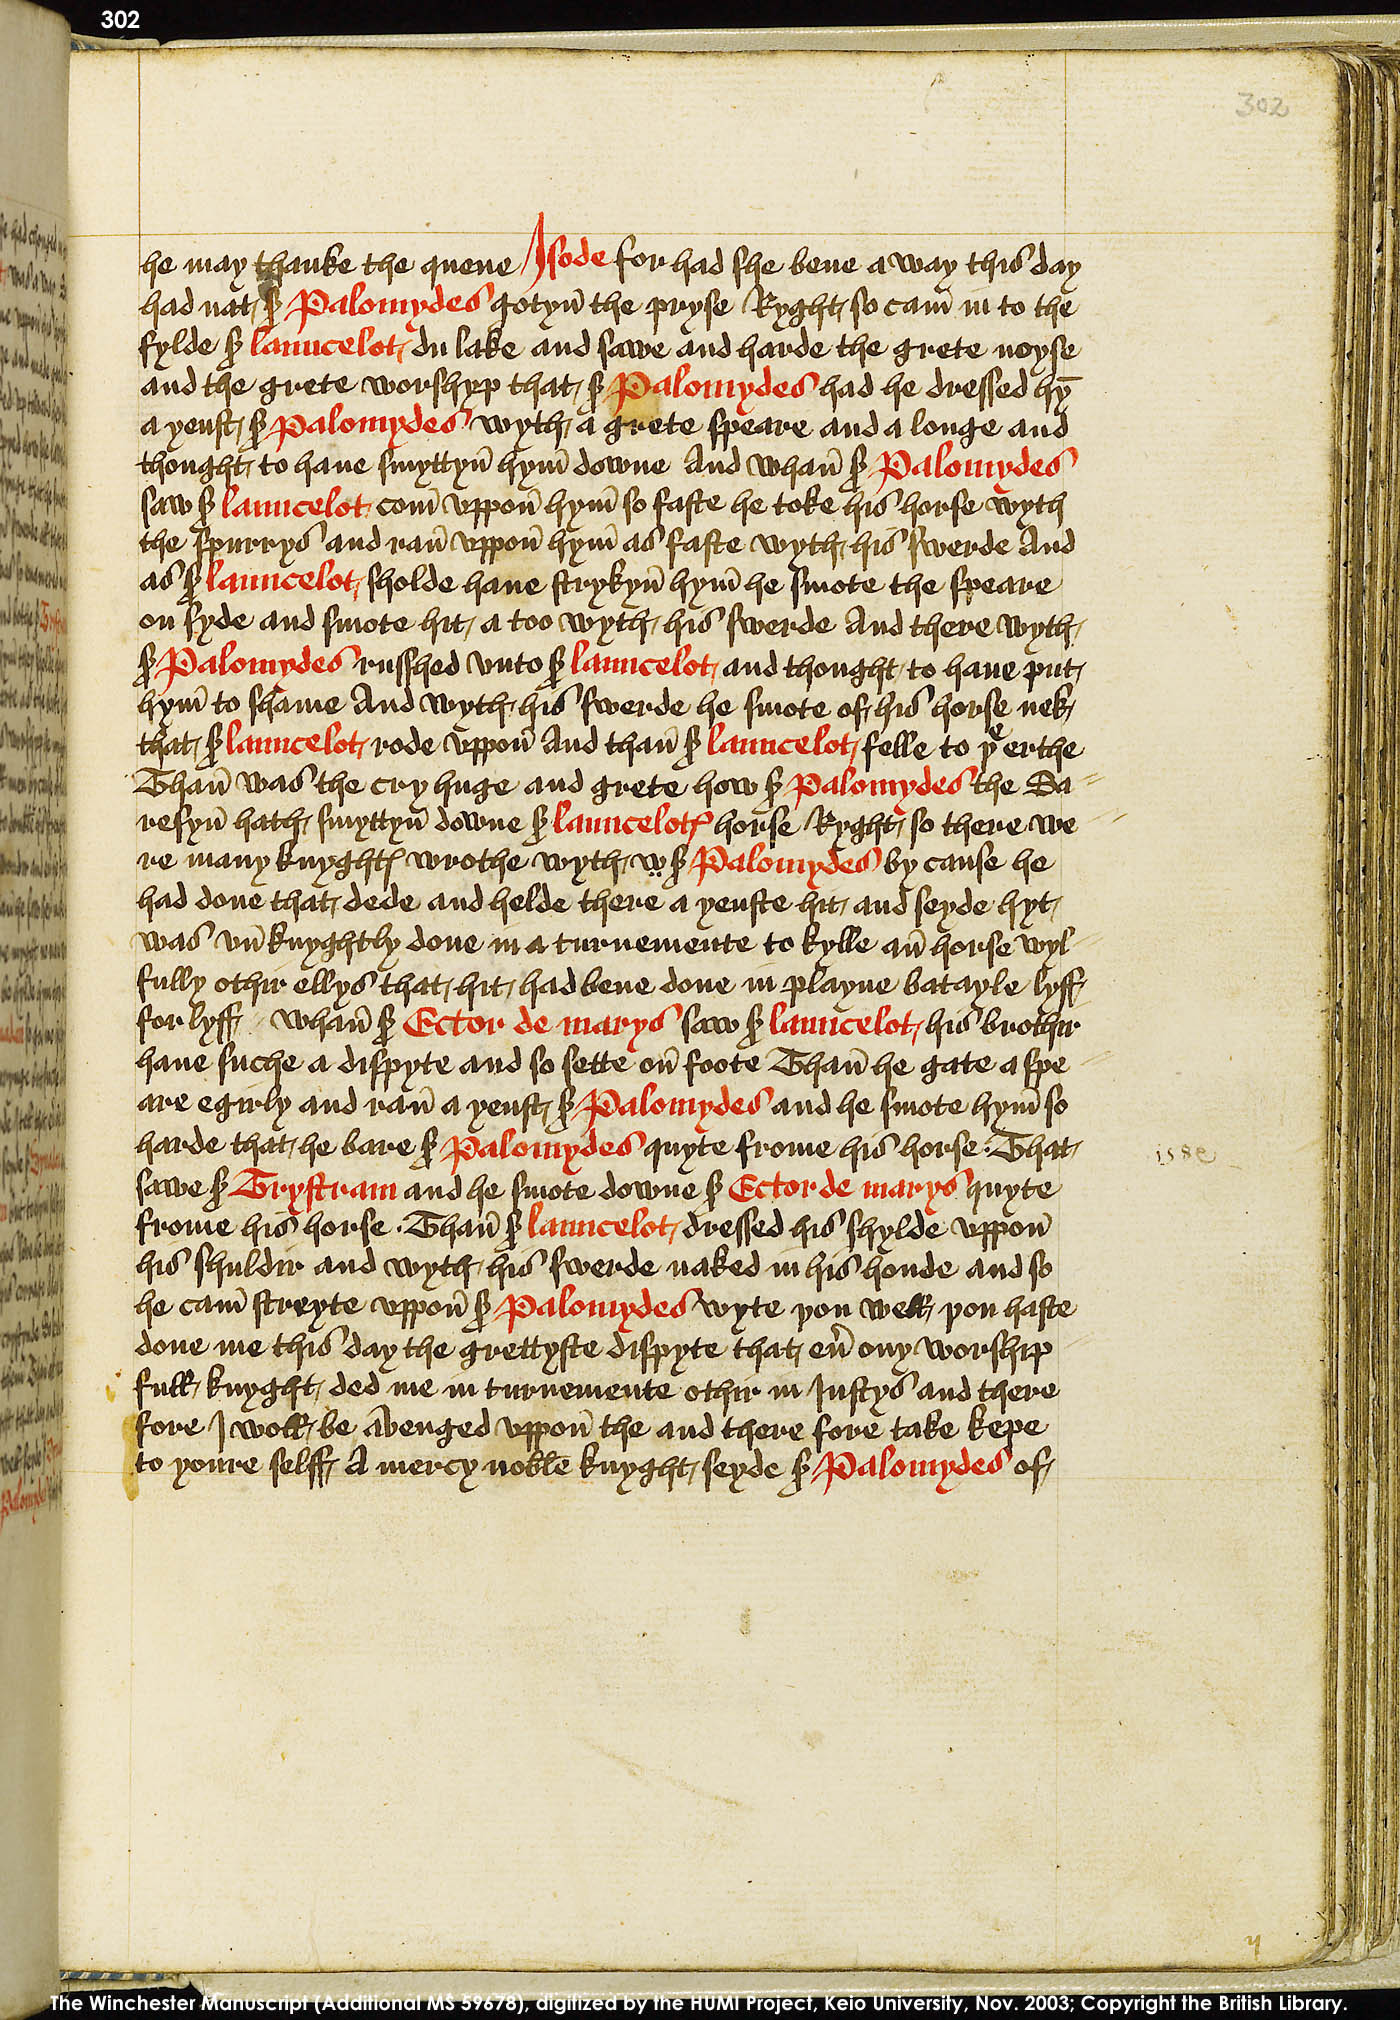 302
302
he may thanke the quene Isode for had she bene a way this day
had nat sr Palomydes gotyn̄ the pryse Ryght so cam̄ in to the
fylde sr launcelot du lake and sawe and harde the grete noyse
and the grete worshyp that sr Palomydes had he dressed hȳ
a yenst sr Palomydes wyth a grete speare and a longe and
thought to haue smyttyn̄ hym̄ downe And whan̄ sr Palomydes
saw sr launcelot com̄ vppon̄ hym̄ so faste he toke his horse wyth
the spurrys and ran̄ vppon̄ hym̄ as faste wyth his swerde And
as sr launcelot sholde haue strykyn̄ hym̄ he smote the speare
on syde and smote hit a too wyth his swerde And there wyth
sr Palomydes russhed vnto sr launcelot and thought to haue put
hym̄ to shame And wyth his swerde he smote of his horse nek
that sr launcelot rode vppon̄ And than̄ sr launcelot felle to ye erthe
Than̄ was the cry huge and grete how sr Palomydes the Sa
resyn̄ hath smyttyn̄ downe sr launcelotꝭ horse Ryght so there we
re many knyghtꝭ wrothe wyth w sr Palomydes by cause he
had done that dede and helde there a yenste hit and seyde hyt
was vn̄ knyghtly done in a turnemente to kylle an̄ horse wyl
fully othir ellys that hit had bene done in playne batayle lyff
for lyff whan̄ sr Ector de marys saw sr launcelot his brothir
haue suche a dispyte and so sette on̄ foote Than̄ he gate a spe
are egirly and ran̄ a yenst sr Palomydes and he smote hym̄ so
harde that he bare sr Palomydes quyte frome his horse · That
sawe sr Trystram and he smote downe sr Ector de marys quyte
frome his horse · Than̄ sr launcelot dressed his shylde vppon̄
his shuldir and wyth his swerde naked in his honde and so
he cam̄ streyte vppon̄ sr Palomydes wyte you well you haste
done me this day the grettyste dispyte that eủ ony worship
full knyght ded me in turnemente othir in Iustys and there
fore I woll be avenged vppon̄ the and there fore take kepe
to youre selff A mercy noble knyght seyde sr Palomydes of
The Winchester Manuscript (Additional MS 59678), digitized by the HUMI Project, Keio University, Nov. 2003; Copyright the British Library.